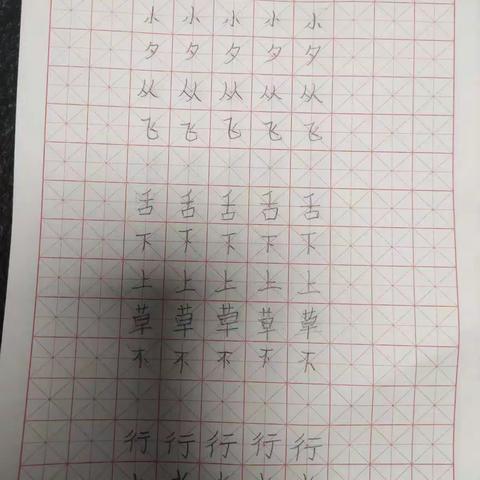 小小小小小
夕夕夕夕夕
从从从从从
飞飞飞飞飞
舌舌舌舌舌
下下下下下
上上上上上
草草草草草
不不不不不
行行行行行